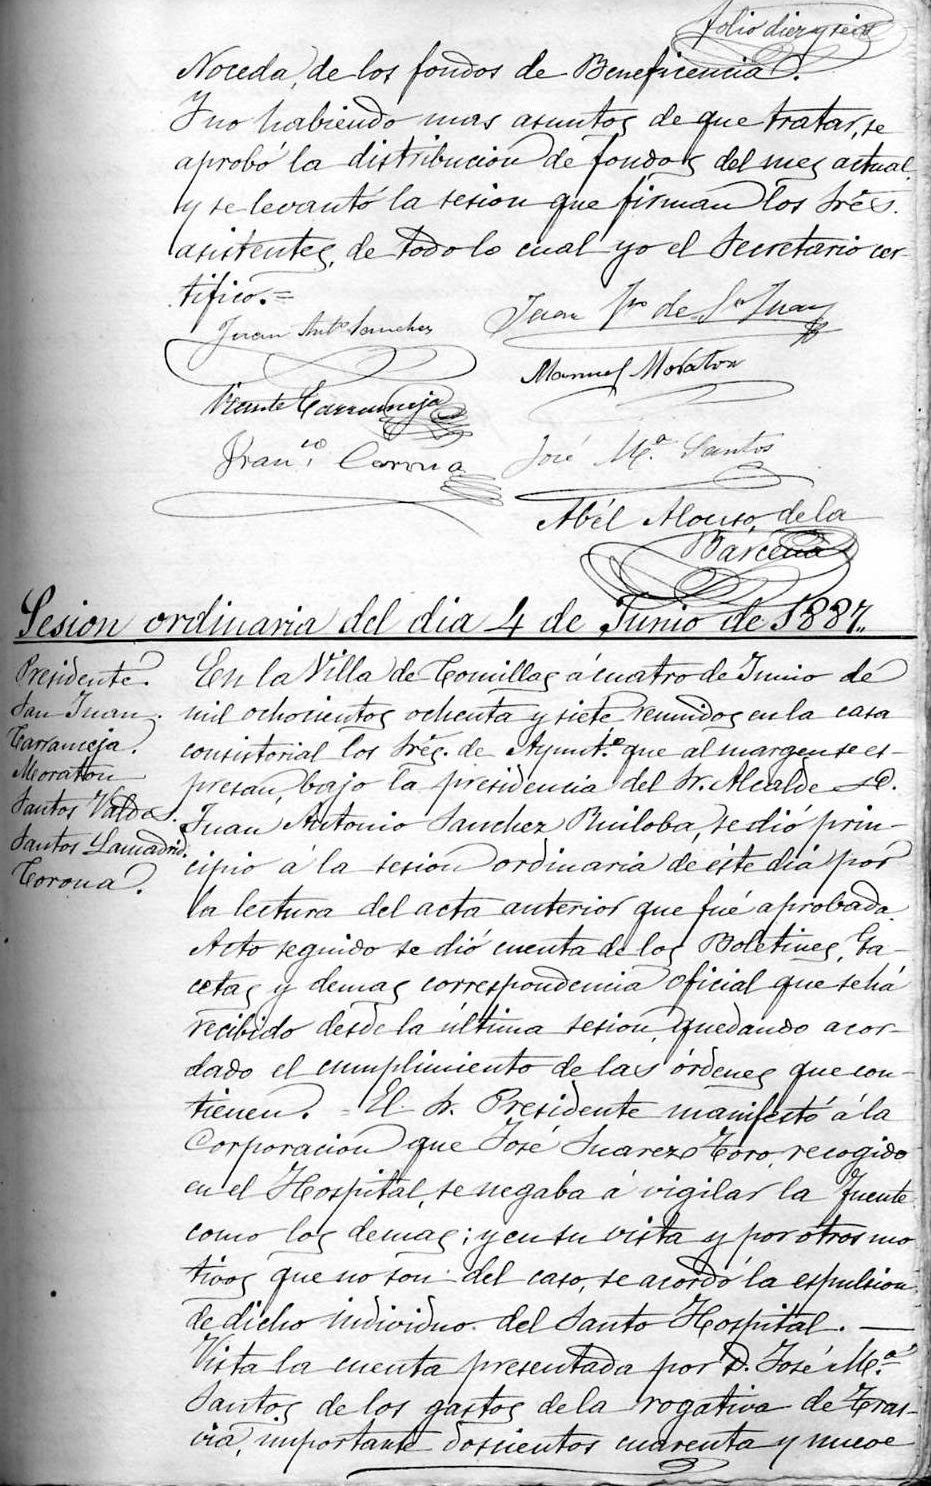 folio diez y seis
Noceda, de los fondos de Beneficencia.
Y no habiendo mas asuntos de que tratar, se
aprobó la distribucion de fondos del mes actual,
y se levantó la sesion que firman los Sres.
asistentes, de todo lo cual yo el Secretario cer-
tifico.=
Juan Anto. Sanchez
Juan de Sn Juan
Manuel Moraton
Vicente Carranceja
Franco. Corona
José Ma. Santos
Abél Alonso de la
Bárcena
Sesion ordinaria del dia 4 de Junio de 1887.
Presidente.
San Juan.
Carranceja.
Moraton
Santos Valdes.
Santos Lamadrid.
Corona.
En la Villa de Comillas á cuatro de Junio de
mil ochocientos ochenta y siete reunidos en la casa
consistorial los Sres. de Ayuntº. que al margen se es-
presan, bajo la presidencia del Sr. Alcalde D.
Juan Antonio Sanchez Ruiloba, se dió prin-
cipio á la sesion ordinaria de éste dia por
la lectura del acta anterior que fué aprobada.
Acto seguido se dió cuenta de los Boletines, Ga-
cetas y demas correspondencia oficial que se há
recibido desde la última sesion, quedando acor-
dado el cumplimiento de las órdenes que con-
tienen. = El Sr. Presidente manifestó á la
Corporacion que José Suarez Toro, recogido
en el Hospital, se negaba á vigilar la fuente
como los demas; y en su vista y por otros mo
tivos que no son del caso, se acordó la espulsion
de dicho individuo del Santo Hospital. —
Vista la cuenta presentada por D. José Mª
Santos de los gastos de la rogativa de Tras-
via, importante doscientos cuarenta y nueve